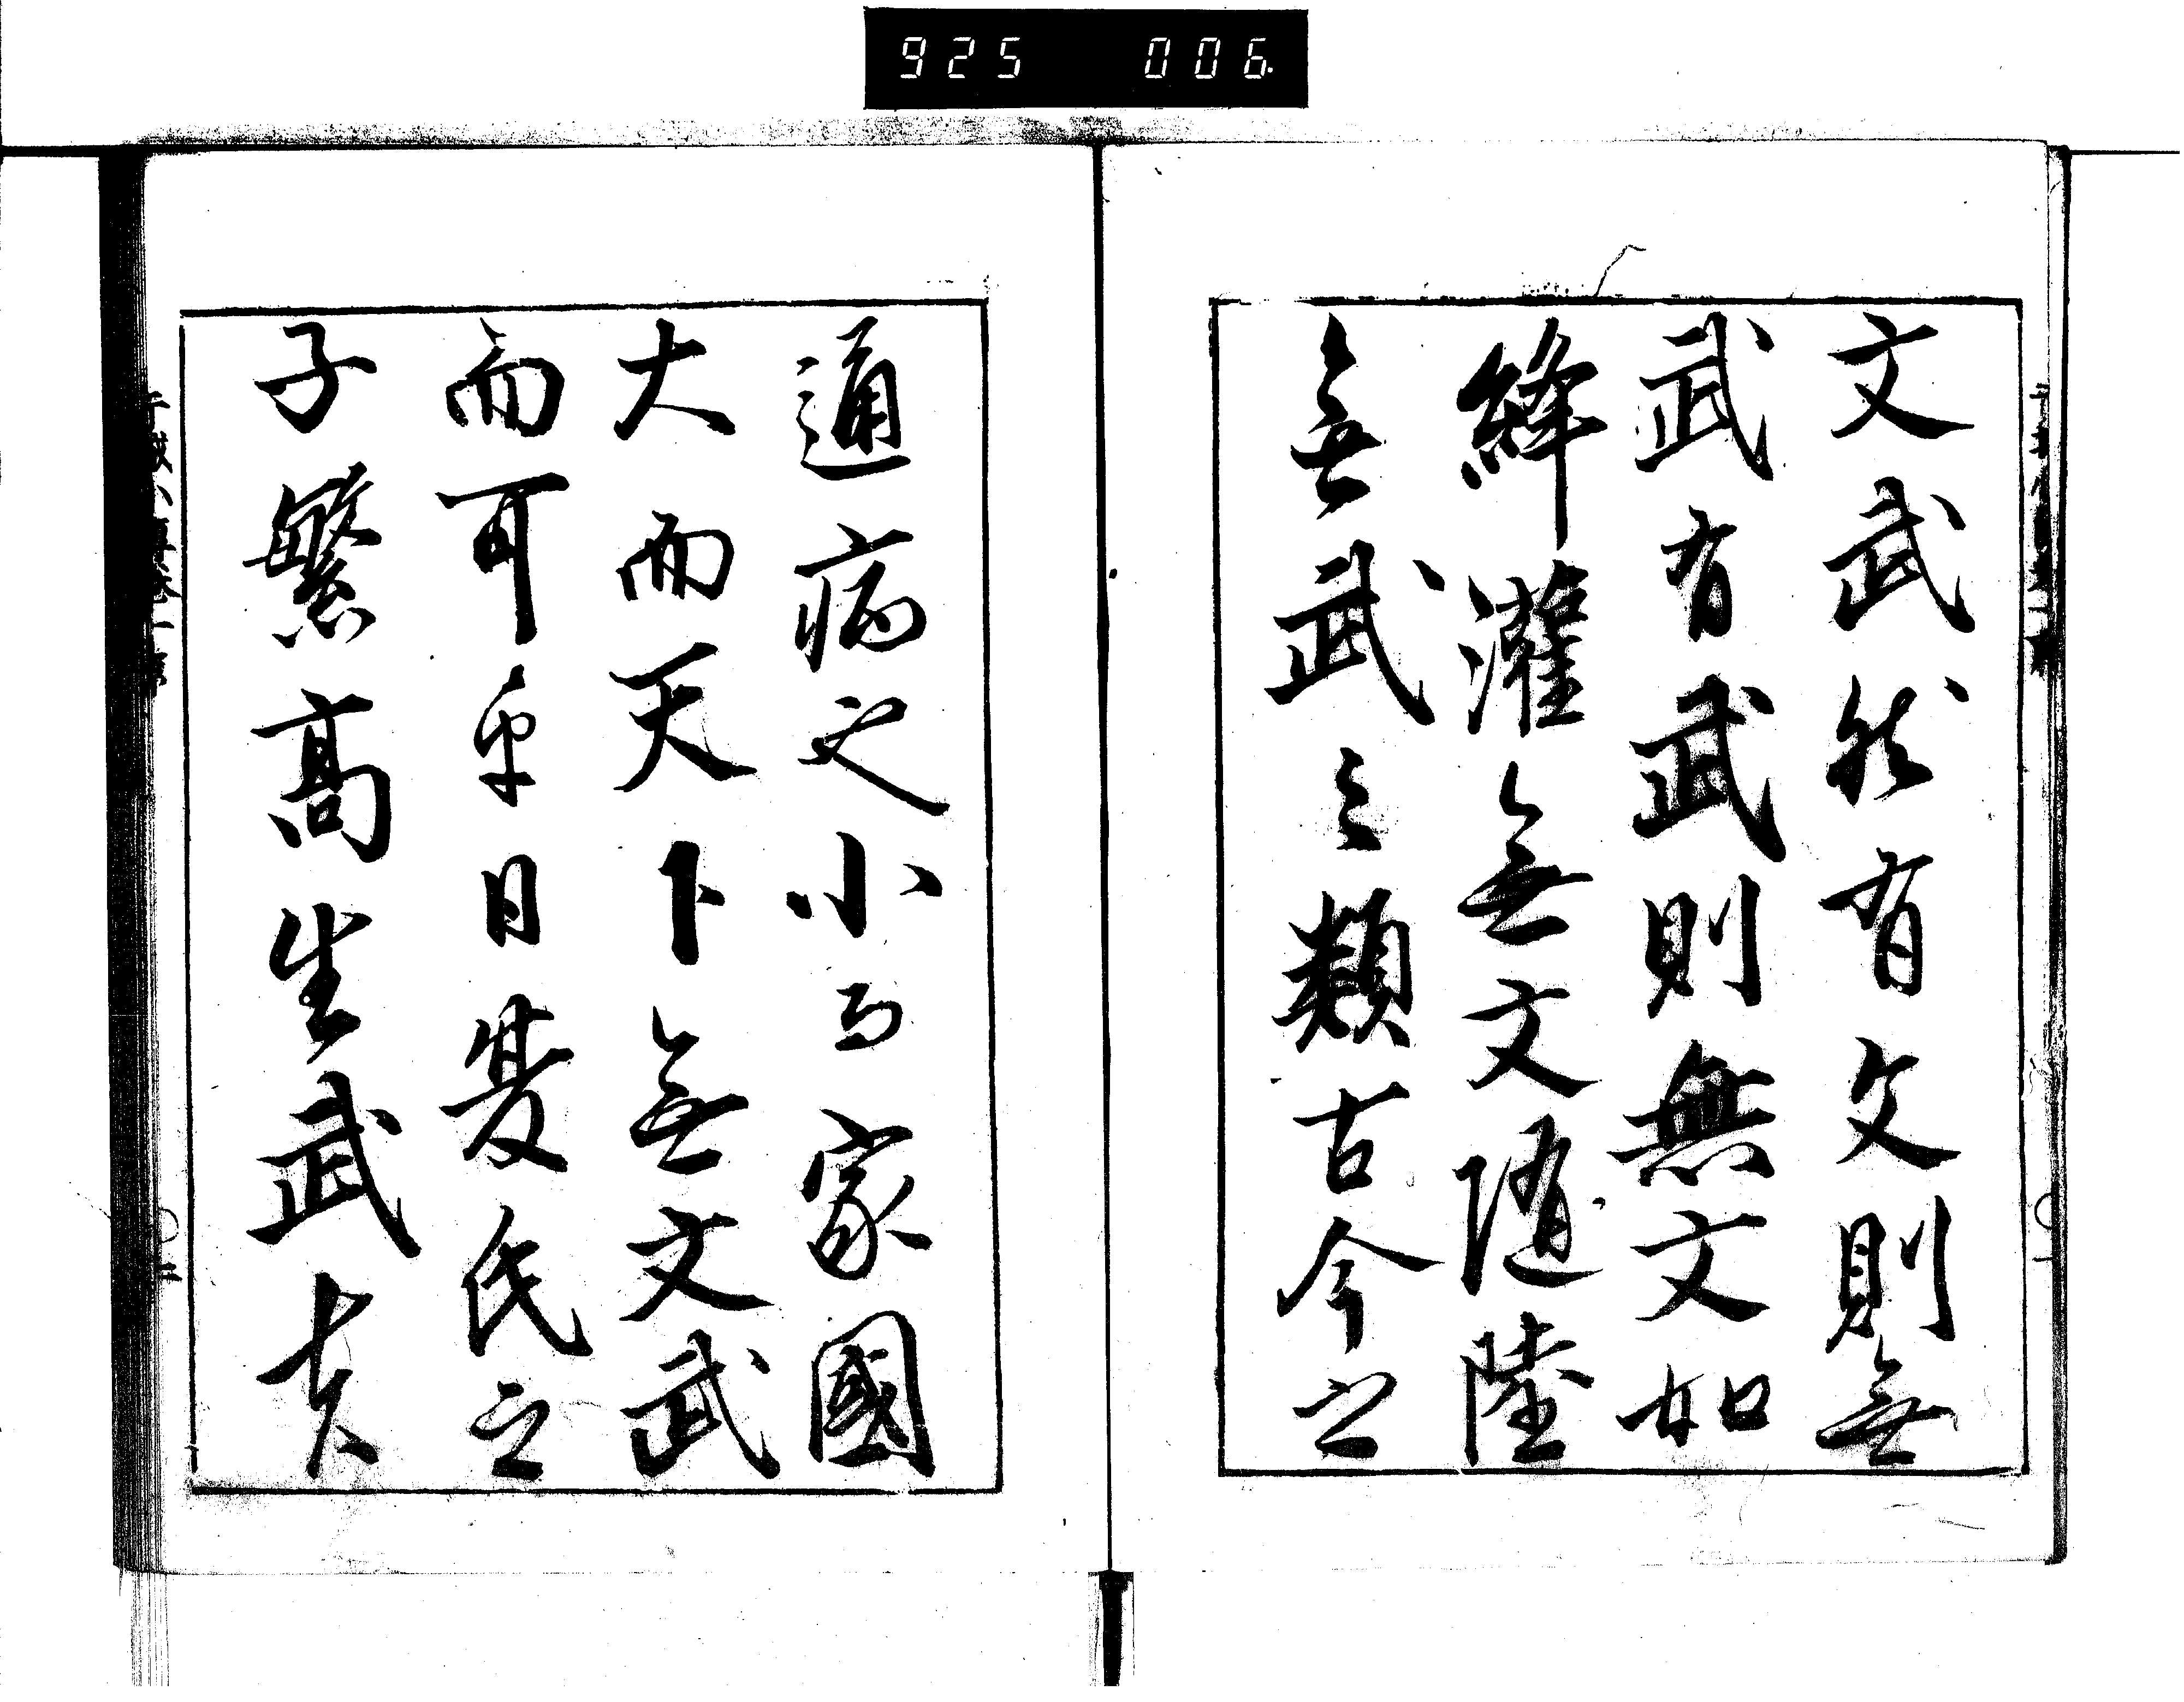 文武然有文則無
武有武則無文如
絳灌無文随陸
無武之類古今之
通病也小而家國
大而天下無文武
而可乎日夏氏之
子繁高生武